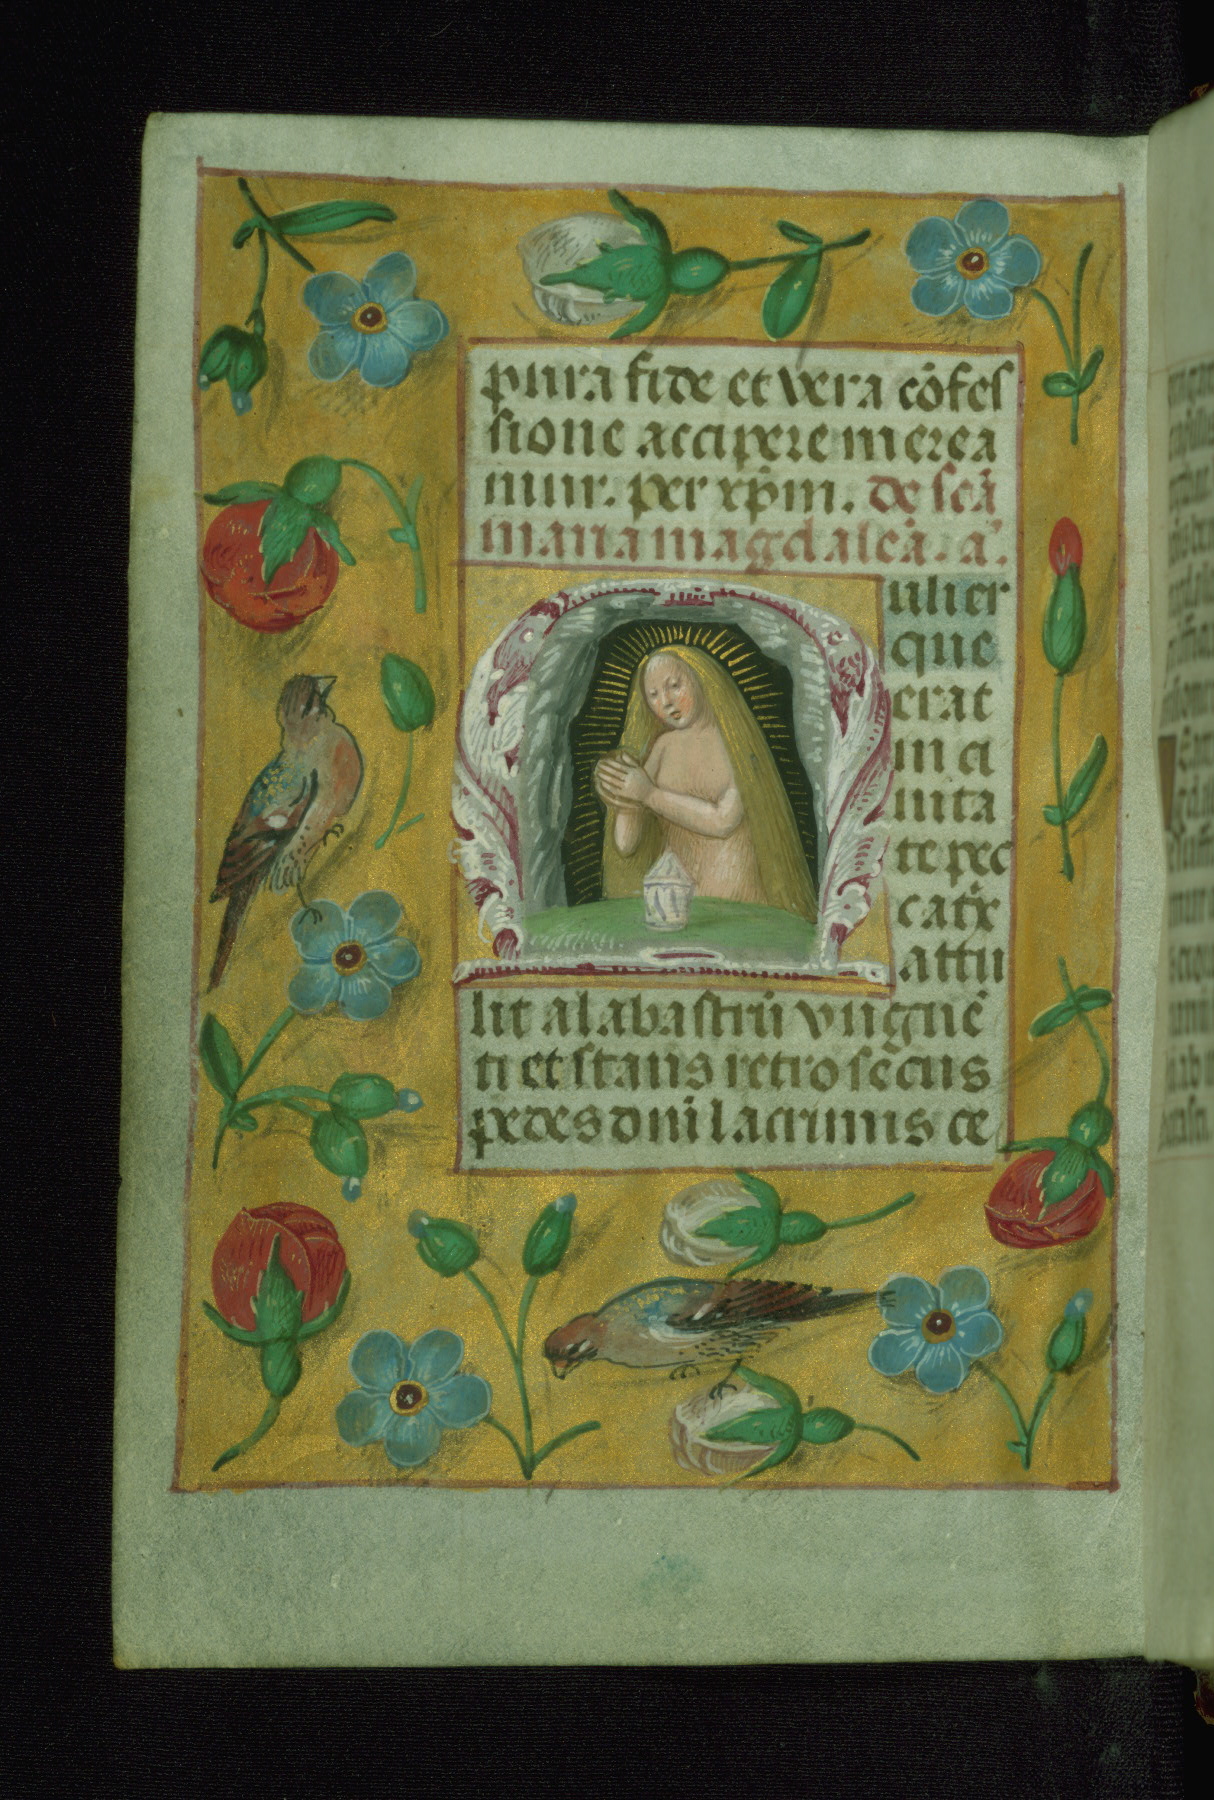 pura fide et vera cōfes
sione accipere merea
mur. per xp̄m. de scā
maria magdaleā. a͞.
Mulier
que
erat
in ci
uita
te pec
catx̄
attu
lit alabastrū vnguē
ti et stans retro secus
pedes dnī lacrimis ce